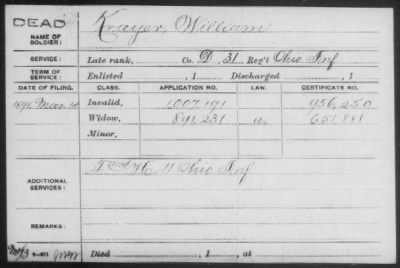 DEAD
NAME OF SOLDIER: Krayer, William
SERVICE: Late rank, Co. D, 31 Reg't Ohio Inf
TERM OF SERVICE: Enlisted , 1 Discharged , 1
DATE OF FILING. CLASS. APPLICATION NO. LAW. CERTIFICATE NO.
1891 Mar. Invalid, 1,007,191 956,250
Widow, 891,231 651,881
Minor,
ADDITIONAL SERVICES: H 11 Ohio Inf
REMARKS:
Died , 1 , at